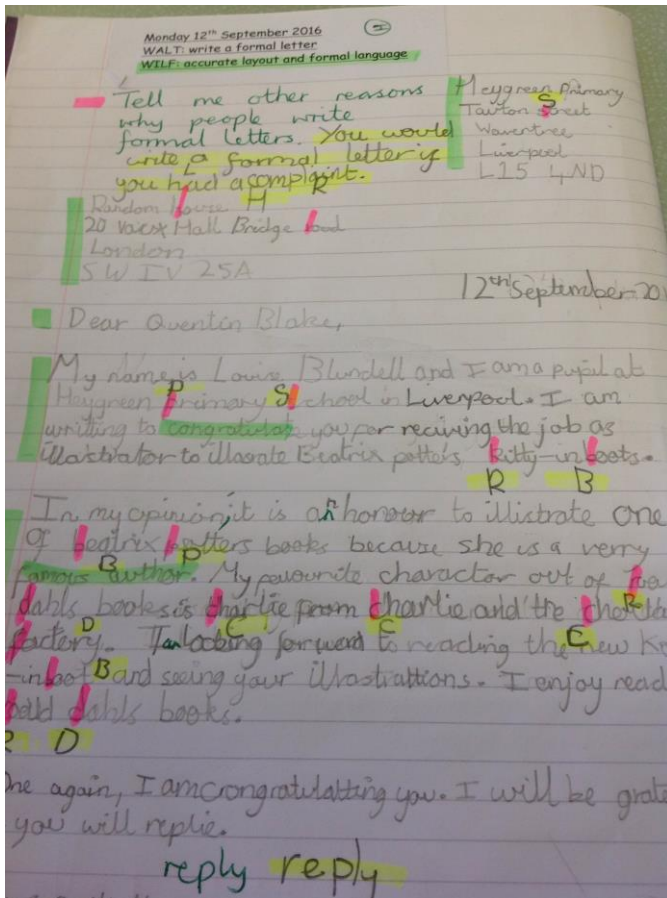 Monday 12th September 2016
WALT: write a formal letter
WILF: accurate layout and formal language
Tell me other reasons
why people write
formal letters. You would
write a formal letter if
you had a complaint.
Heygreen Primary
S
Tawton street
Wavertree
Liverpool
L15 4ND
R
Random house H
20 Hall Bridge road
London
SW1V 2SA
12th September 201
Dear Quentin Blake,
My name is Louise Blundell and I am a pupil at
P S
Heygreen primary School in Liverpool. I am
writting to congratulate you for reciving the job as
illastrator to illasrate Beatrix potters kitty-in boots.
R B
In my opinion, it is an honour to illistrate one
of beatrix potters books because she is a verry
B P
famous author. My favourite character out of roa
R
dahls books is charlie from charlie and the choc
D C C C
factory. I am looking forward to reading the new K
-in boot B and seeing your illastrattions. I enjoy read
oald dahls books.
R D
One again, I am crongratulatting you. I will be grate
you will replie.
reply reply